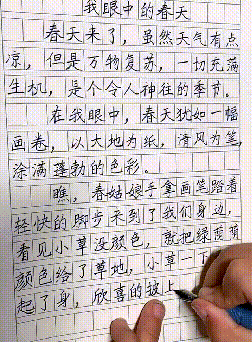 我眼中的春天
春天来了，虽然天气有点
凉，但是万物复苏，一切充满
生机，是个令人神往的季节。
在我眼中，春天犹如一幅
画卷，以大地为纸，清风为笔，
涂满蓬勃的色彩。
瞧，春姑娘手拿画笔踏着
轻快的脚步来到了我们身边，
看见小草没颜色，就把绿
颜色给了草地，小草一下
起了身，欣喜的披上